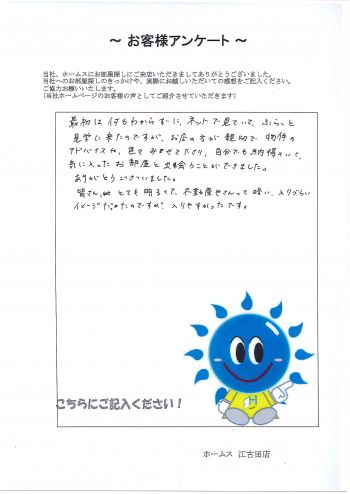 ～ お客様アンケート ～
当社、ホームスにお部屋探しにご来店いただきましてありがとうございました。
当社へのお部屋探しのきっかけや、実際にお越しいただいての感想をご記入ください。
ご協力お願いいたします。
(当社ホームページのお客様の声としてご紹介させていただきます)
最初は何もわからずに、ネットで見ていて、ふらっと
見学に来たのですが、お店の方が親切で物件の
アドバイスや、色々みせて下さり、自分でも納得がいく、
気に入ったお部屋と出会うことができました。
ありがとうございました。
皆さん、とても明るくて、不動産やさんって暗い、入りづらい
イメージだったのですが、入りやすかったです。
こちらにご記入ください！
ホームス 江古田店